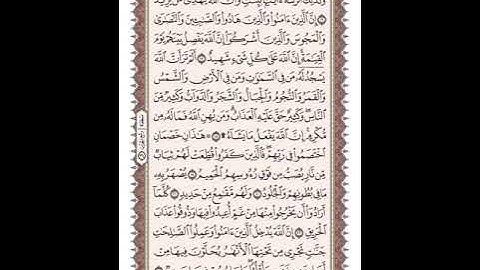 وَكَذَٰلِكَ أَنزَلْنَاهُ ءَايَٰتٍۭ بَيِّنَٰتٍ وَأَنَّ ٱللَّهَ يَهْدِى مَن يُرِيدُ
إِنَّ ٱلَّذِينَ ءَامَنُوا۟ وَٱلَّذِينَ هَادُوا۟ وَٱلصَّٰبِـِٔينَ وَٱلنَّصَٰرَىٰ
وَٱلْمَجُوسَ وَٱلَّذِينَ أَشْرَكُوٓا۟ إِنَّ ٱللَّهَ يَفْصِلُ بَيْنَهُمْ يَوْمَ
ٱلْقِيَٰمَةِ إِنَّ ٱللَّهَ عَلَىٰ كُلِّ شَىْءٍ شَهِيدٌ أَلَمْ تَرَ أَنَّ ٱللَّهَ
يَسْجُدُ لَهُۥ مَن فِى ٱلسَّمَٰوَٰتِ وَمَن فِى ٱلْأَرْضِ وَٱلشَّمْسُ
وَٱلْقَمَرُ وَٱلنُّجُومُ وَٱلْجِبَالُ وَٱلشَّجَرُ وَٱلدَّوَآبُّ وَكَثِيرٌ مِّنَ
ٱلنَّاسِ وَكَثِيرٌ حَقَّ عَلَيْهِ ٱلْعَذَابُ وَمَن يُهِنِ ٱللَّهُ فَمَا لَهُۥ مِن
مُّكْرِمٍ إِنَّ ٱللَّهَ يَفْعَلُ مَا يَشَآءُ ۩ هَٰذَانِ خَصْمَانِ
ٱخْتَصَمُوا۟ فِى رَبِّهِمْ فَٱلَّذِينَ كَفَرُوا۟ قُطِّعَتْ لَهُمْ ثِيَابٌ
مِّن نَّارٍ يُصَبُّ مِن فَوْقِ رُءُوسِهِمُ ٱلْحَمِيمُ يُصْهَرُ بِهِۦ
مَا فِى بُطُونِهِمْ وَٱلْجُلُودُ وَلَهُم مَّقَٰمِعُ مِنْ حَدِيدٍ كُلَّمَآ
أَرَادُوٓا۟ أَن يَخْرُجُوا۟ مِنْهَا مِنْ غَمٍّ أُعِيدُوا۟ فِيهَا وَذُوقُوا۟ عَذَابَ
ٱلْحَرِيقِ إِنَّ ٱللَّهَ يُدْخِلُ ٱلَّذِينَ ءَامَنُوا۟ وَعَمِلُوا۟ ٱلصَّٰلِحَٰتِ
جَنَّٰتٍ تَجْرِى مِن تَحْتِهَا ٱلْأَنْهَٰرُ يُحَلَّوْنَ فِيهَا مِنْ